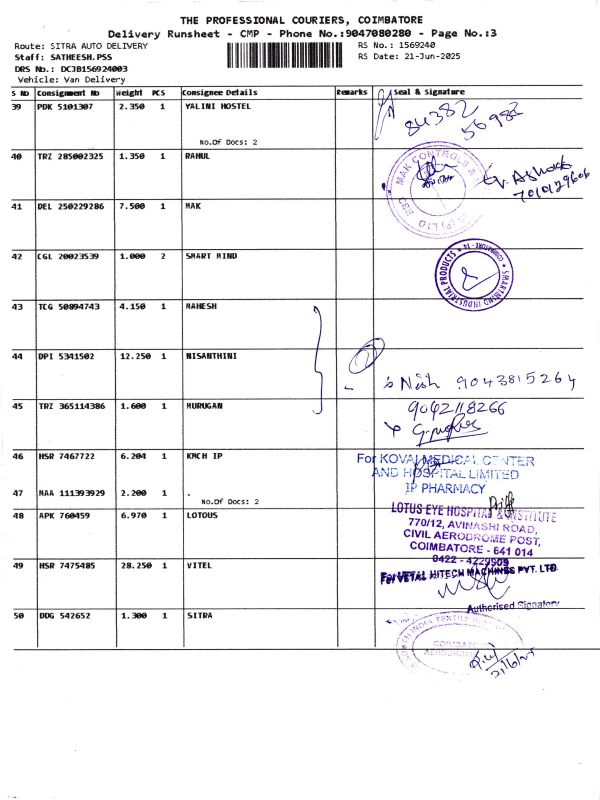 THE PROFESSIONAL COURIERS, COIMBATORE
Delivery Runsheet - CMP - Phone No.:9047080280 - Page No.:3
Route: SITRA AUTO DELIVERY
RS No.: 1569240
Staff: SATHEESH.PSS
RS Date: 21-Jun-2025
DRS No.: DCJB156924003
Vehicle: Van Delivery
S No Consignment No Weight PCS Consignee Details Remarks Seal & Signature
39 PDK 5101307 2.350 1 YALINI HOSTEL
84382
56982
No.Of Docs: 2
40 TRZ 285002325 1.350 1 RAHUL
MAK CONTROLS &
(P) LTD
7010129606
41 DEL 250229286 7.500 1 MAK
42 CGL 20023539 1.000 2 SMART MIND
SMARTMIND INDUSTRIAL PRODUCTS * COIMBATORE - 14 *
43 TCG 50894743 4.150 1 MAHESH
44 DPI 5341502 12.250 1 NISANTHINI
Nish 9043815264
45 TRZ 365114386 1.600 1 MURUGAN
9042118266
46 HSR 7467722 6.204 1 KMCH IP
For KOVAI MEDICAL CENTER
AND HOSPITAL LIMITED
IP PHARMACY
47 MAA 111393929 2.200 1 .
No.Of Docs: 2
48 APK 760459 6.970 1 LOTOUS
LOTUS EYE HOSPITAL & INSTITUTE
770/12, AVINASHI ROAD,
CIVIL AERODROME POST,
COIMBATORE - 641 014
0422 - 4229909
49 HSR 7475485 28.250 1 VITEL
For VETAL HITECH MACHINES PVT. LTD.
Authorised Signatory
50 DDG 542652 1.300 1 SITRA
INDIA TEXTILE
COIMBATORE
21/6/25